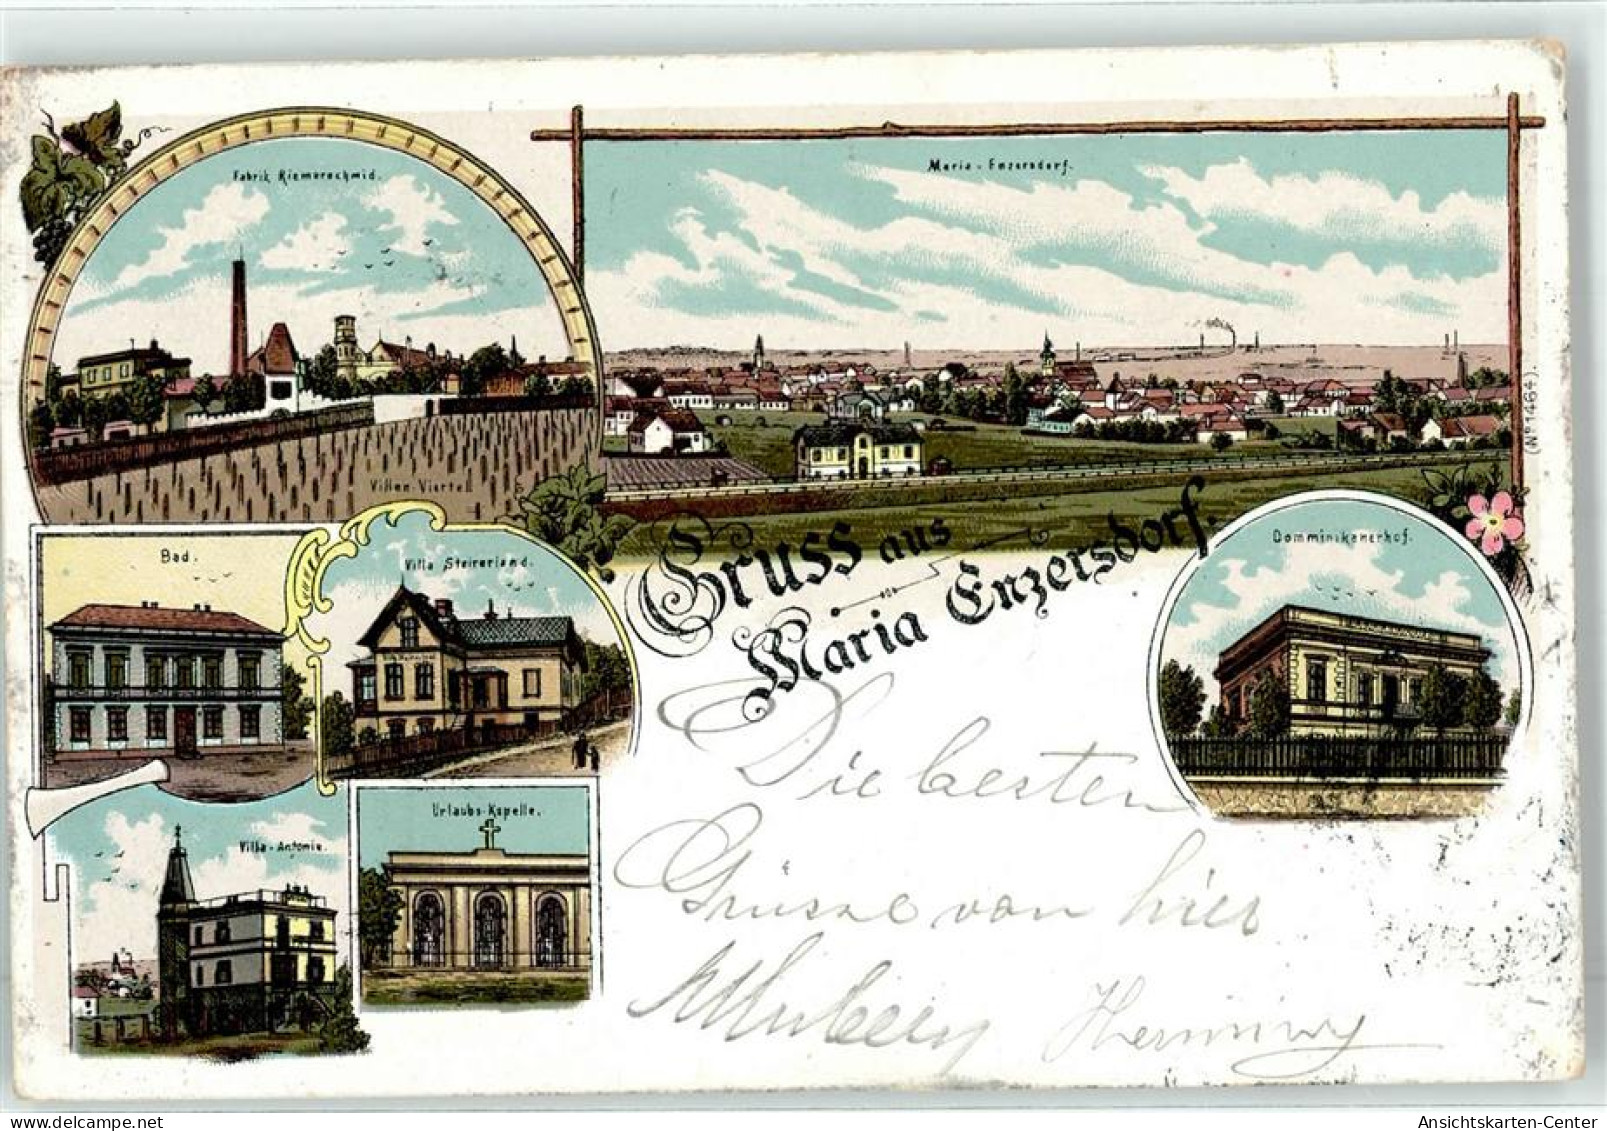 Fabrik Riemerschmid.
Villen-Viertel
Maria-Enzersdorf.
(No 1464).
Gruss aus
Maria Enzersdorf.
Bad.
Villa Steirerland.
Domminikanerhof.
Villa-Antonie.
Urlaubs-Kapelle.
Die besten
Grüsse von hier
Ansichtskarten-Center